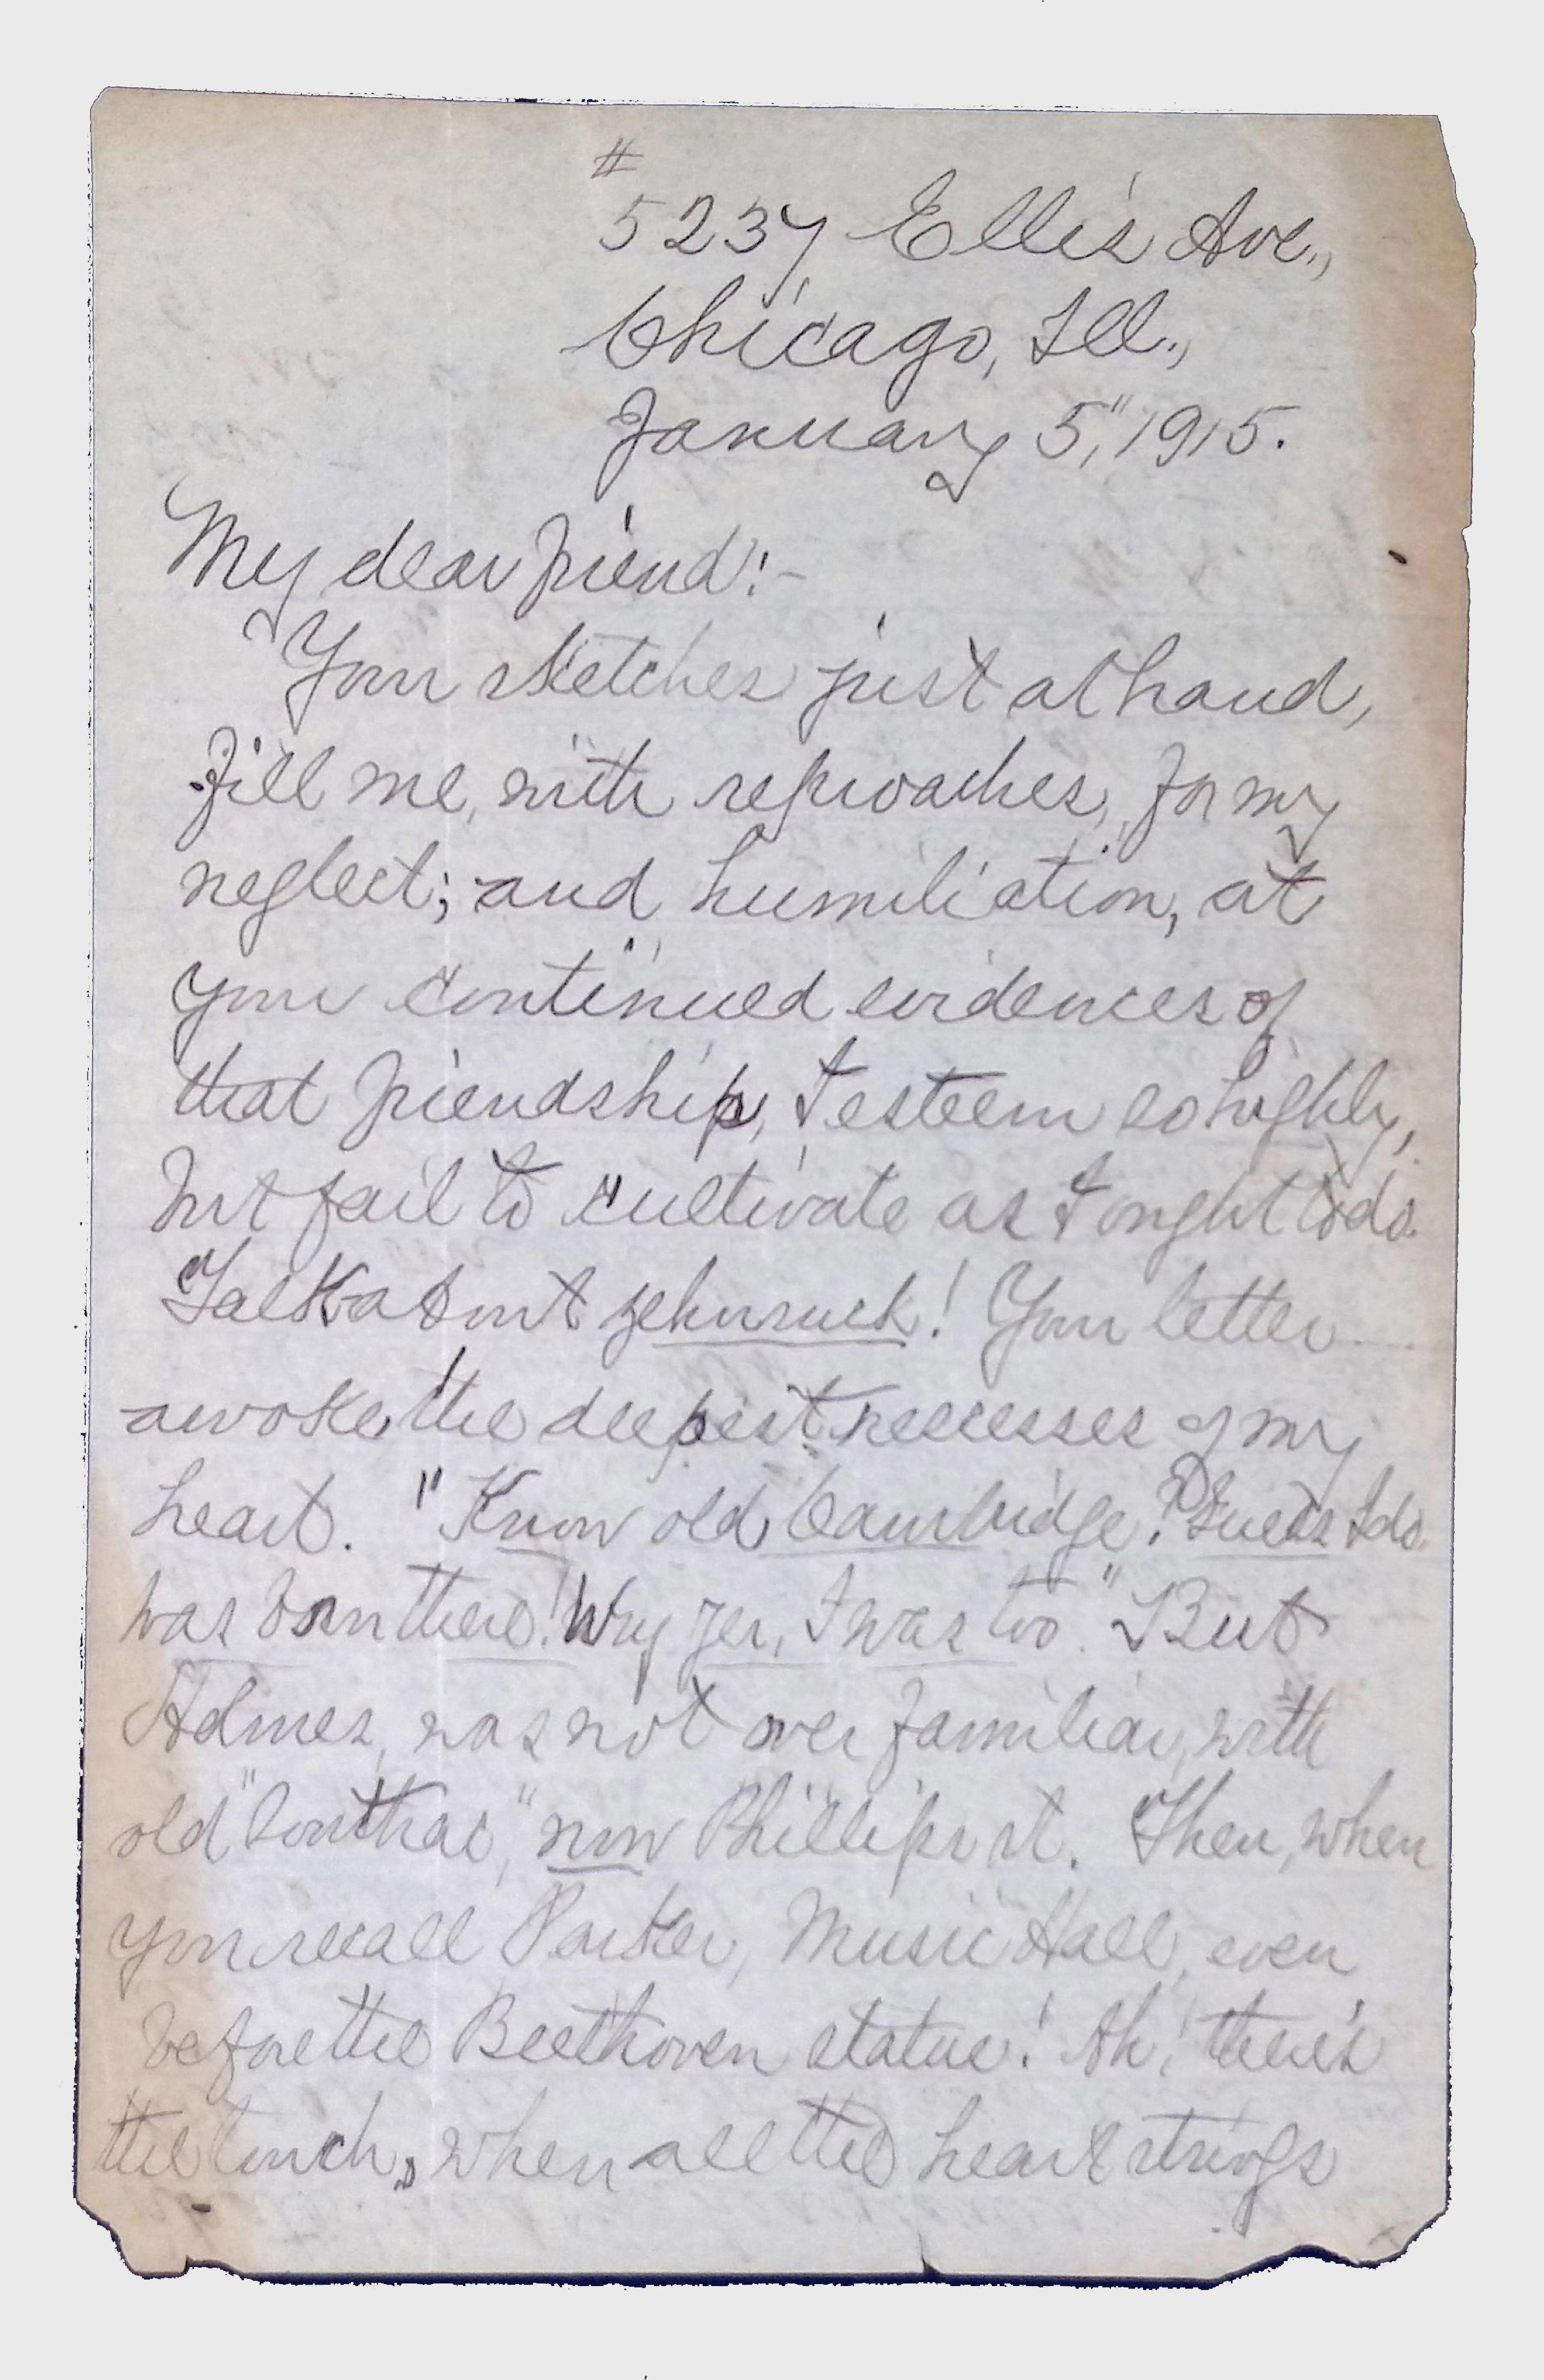 #
5237 Ellis Ave.,
Chicago, Ill.,
January 5," 1915.
My dear friend:-
Your sketches just at hand,
fill me, with reproaches, for my
neglect; and humiliation, at
your continued evidences of
that friendship, I esteem so highly,
but fail to cultivate as I ought to do.
Talk about! Your letter
awoke the deepest recesses of my
heart. "Know old Cambridge? I do.
Was born there! Why yes, I was too." But
Holmes, was not over familiar, with
old, now Phillips st. Then, when
you recall Parker, Music Hall, even
before the Beethoven statue! Ah! there's
the touch, when all the heart strings